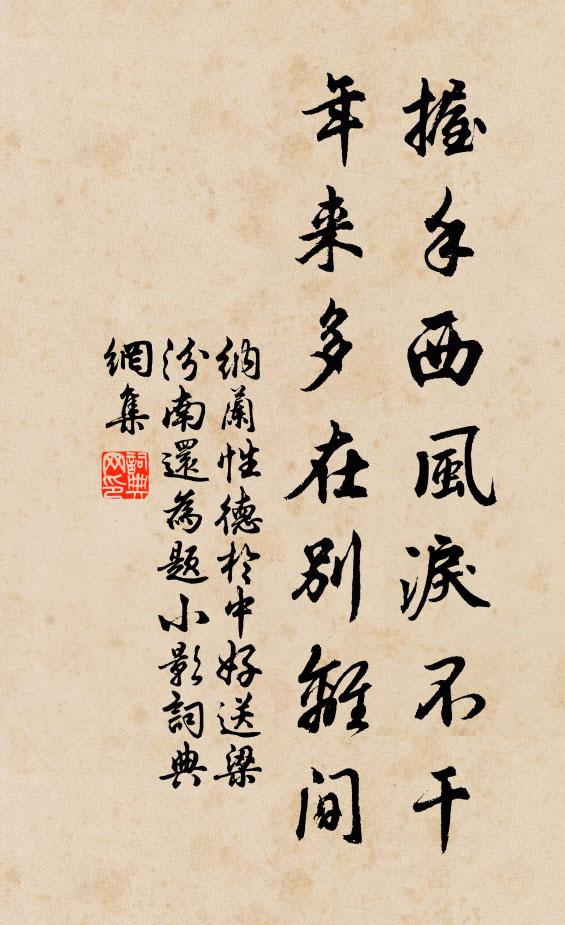 握手西風淚不干
年来多在別離间
納蘭性德於中好送梁
汾南還為題小影詞典
網集
詞典
网印